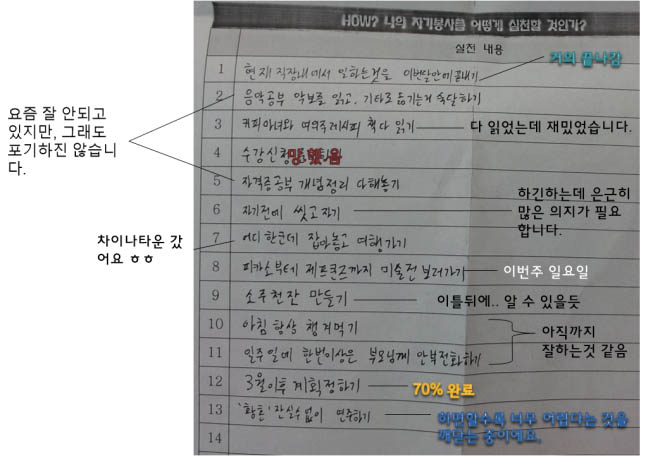 HOW? 나의 자기봉사를 어떻게 실천할 것인가?
실천 내용
1 현재 직장내에서 일하는것을 이번달안에 끝내기
거의 끝나감
2 음악공부 악보를 읽고, 기타로 옮기는거 숙달하기
3 커피아녀와 여의주레시피 책 다 읽기
다 읽었는데 재미있었습니다.
4 수강신청
망했음
5 자격증공부 개념정리 다해놓기
요즘 잘 안되고
있지만, 그래도
포기하진 않습니
다.
6 자기전에 씻고 자기
하긴하는데 은근히
많은 의지가 필요
합니다.
7 어디 한군데 잡아놓고 여행가기
차이나타운 갔
어요 ㅎㅎ
8 피카소부터 제프쿤즈까지 미술전 보러가기
이번주 일요일
9 소주천잔 만들기
이틀뒤에.. 알 수 있을듯
10 아침 항상 챙겨먹기
11 일주일에 한번이상은 부모님께 안부전화하기
아직까지
잘하는것 같음
12 3월이후 계획정하기
70% 완료
13 '황혼' 잔실수없이 연주하기
하면할수록 너무 어렵다는 것을
깨닫는 중이에요.
14